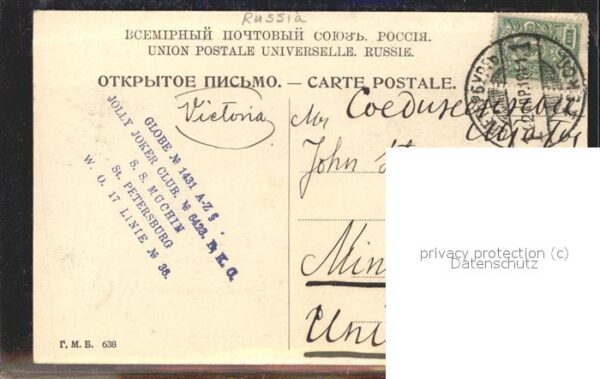 Russia
ВСЕМІРНЫЙ ПОЧТОВЫЙ СОЮЗЪ. РОССІЯ.
UNION POSTALE UNIVERSELLE. RUSSIE.
ОТКРЫТОЕ ПИСЬМО. — CARTE POSTALE.
Victoria
Соединенные
Mr
Штаты
John
GLOBE № 1431 A-Z
JOLLY JOKER CLUB. № 6423.
S. S. MUCHIN
St. PETERSBURG
W. O. 17 LINIE № 38.
Min
Uni
privacy protection (c)
Datenschutz
Г. М. Б. 638